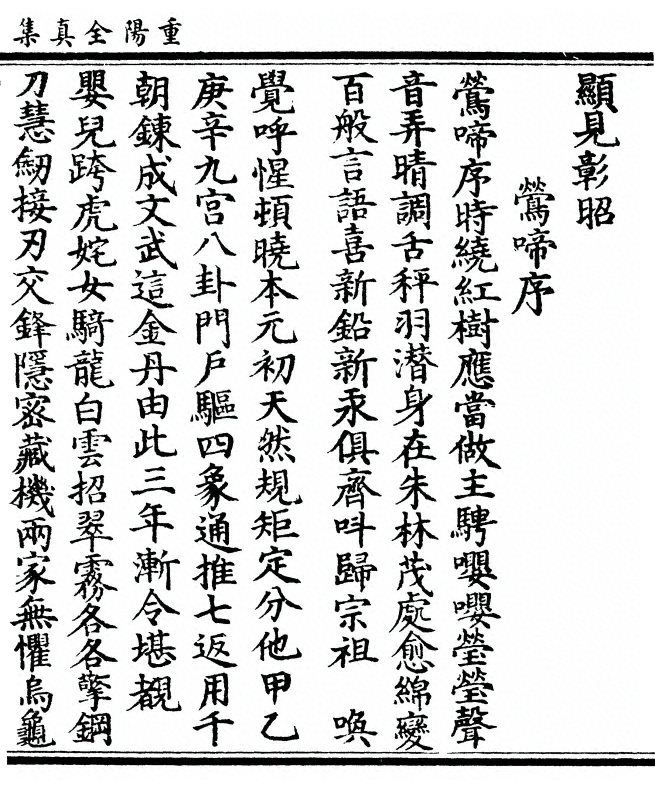 重陽全真集
顯見彰昭
鶯啼序
鶯啼序時繞紅樹應當做主騁嚶嚶瑩瑩聲
音弄晴調舌秤羽潛身在朱林茂處愈綿變
百般言語喜新鉛新汞俱齊呌歸宗祖　喚
覺呼惺頓曉本元初天然規矩定分他甲乙
庚辛九宮八卦門戶驅四象通推七返用千
朝鍊成文武這金丹由此三年漸令堪覩
嬰兒跨虎姹女騎龍白雲招翠霧各各擎鋼
刀慧劒接刃交鋒隱密藏機兩家無懼烏龜